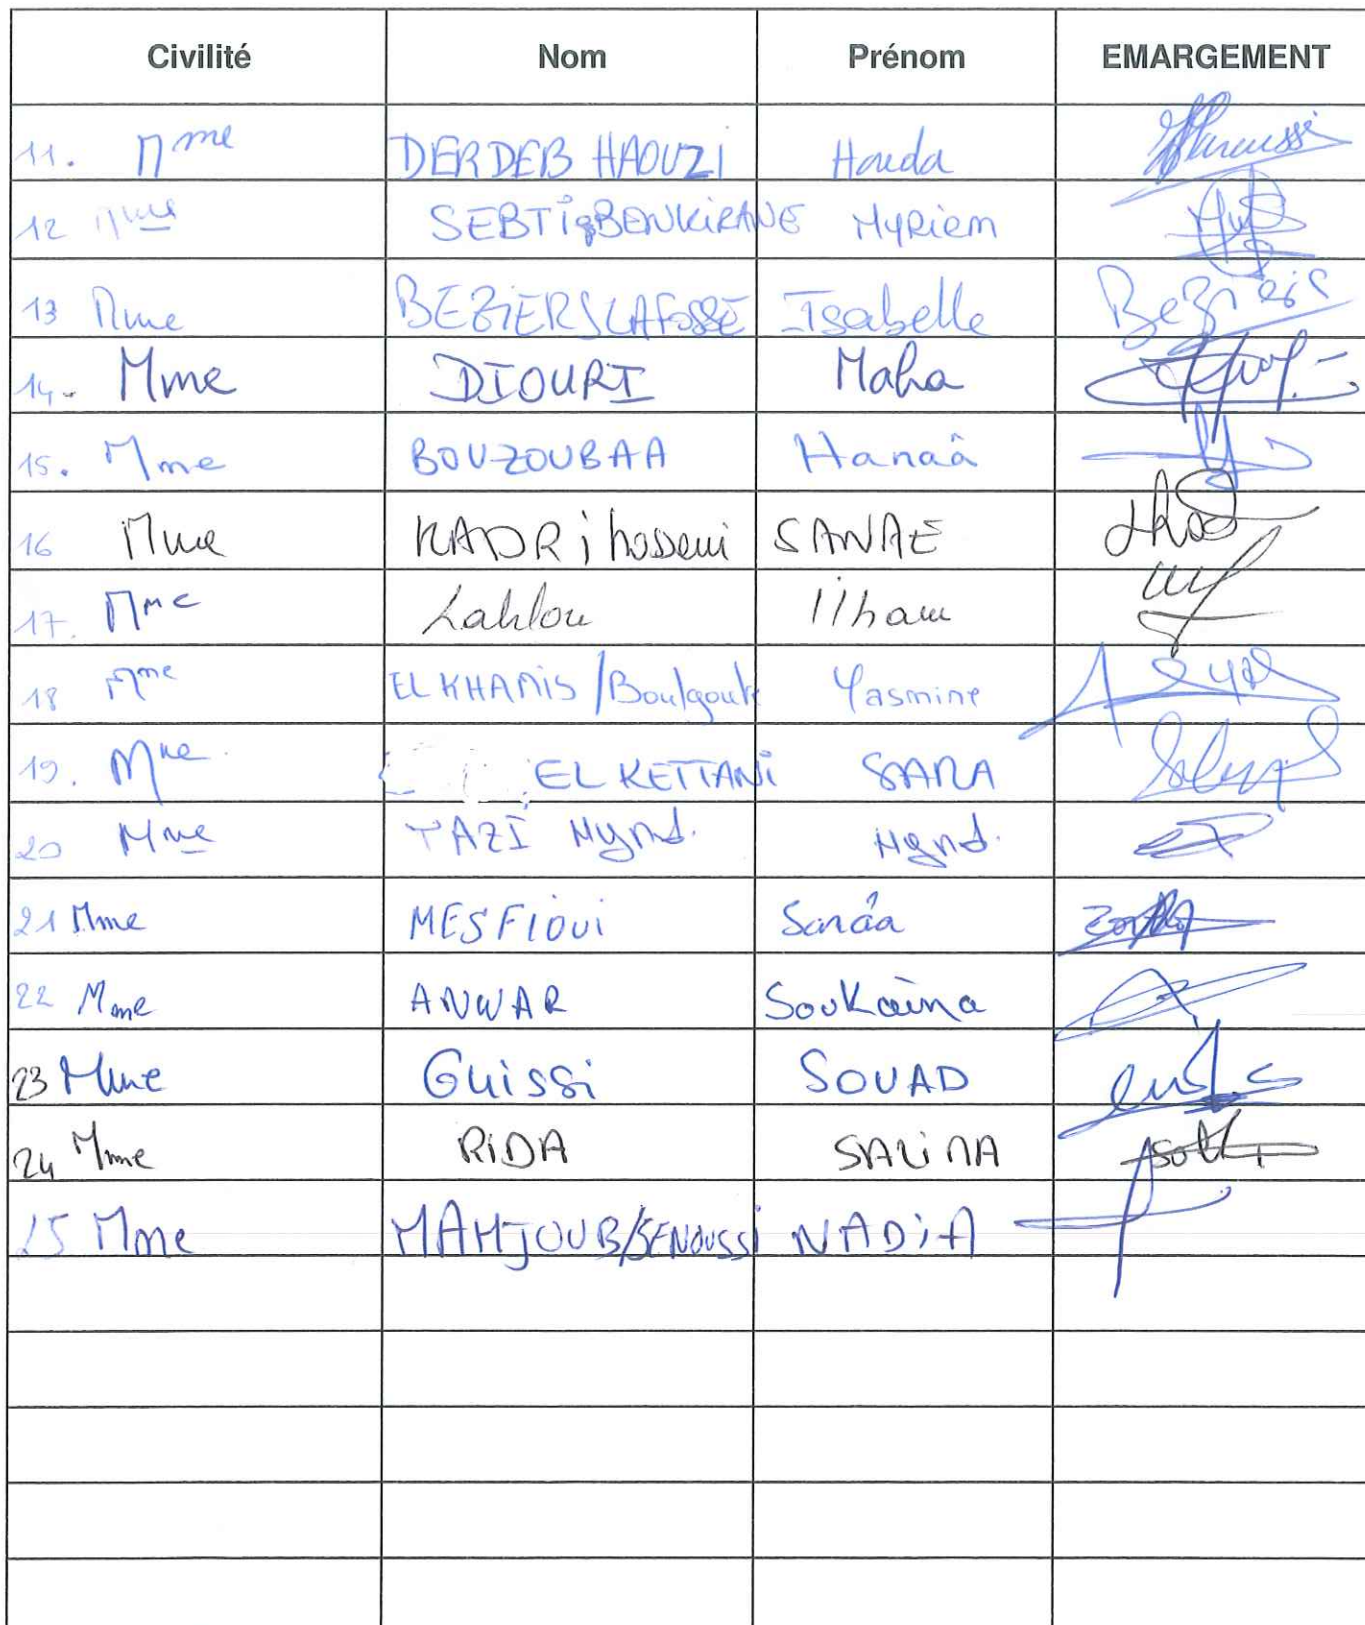 Civilité Nom Prénom EMARGEMENT
11. Mme DERDEB HAOUZI Houda
12 Mme SEBTI BENKIRANE Myriem
13 Mme BEZIERS LAFOSSE Isabelle
14. Mme DIOURI Maha
15. Mme BOUZOUBAA Hanaâ
16 Mme KADRI hosseni SANAE
17. Mme Lahlou Ilham
18 Mme EL KHAMIS / Yasmine
19. Mme EL KETTANI SARA
20 Mme TAZI Hynd. Hynd.
21 Mme MESFIOUI Sanâa
22 Mme ANWAR Soukaïna
23 Mme GUISSI SOUAD
24 Mme RIDA SALIMA
25 Mme MAHJOUB/SENOUSSI NADIA